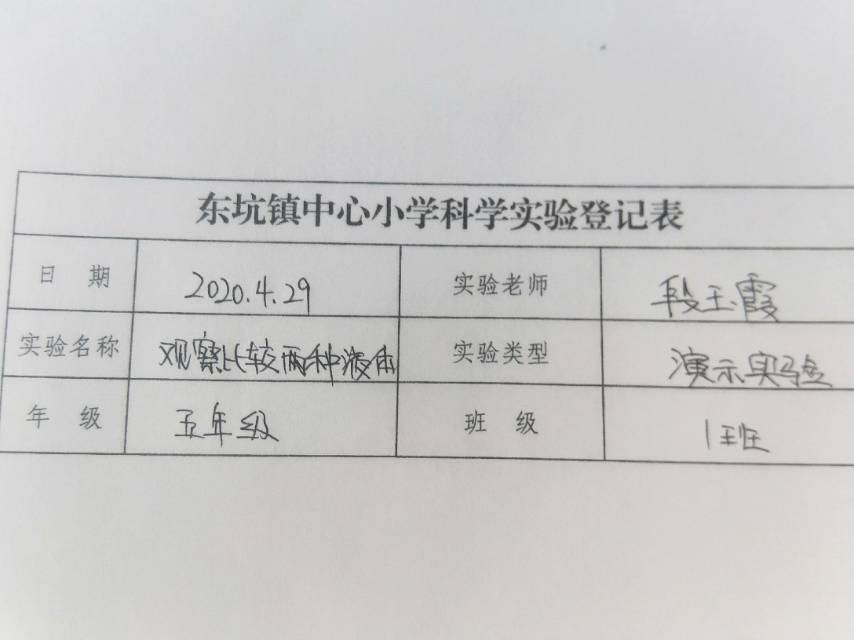 东坑镇中心小学科学实验登记表
日 期 2020.4.29 实验老师 段玉霞
实验名称 观察比较两种液体 实验类型 演示实验
年 级 五年级 班 级 1班